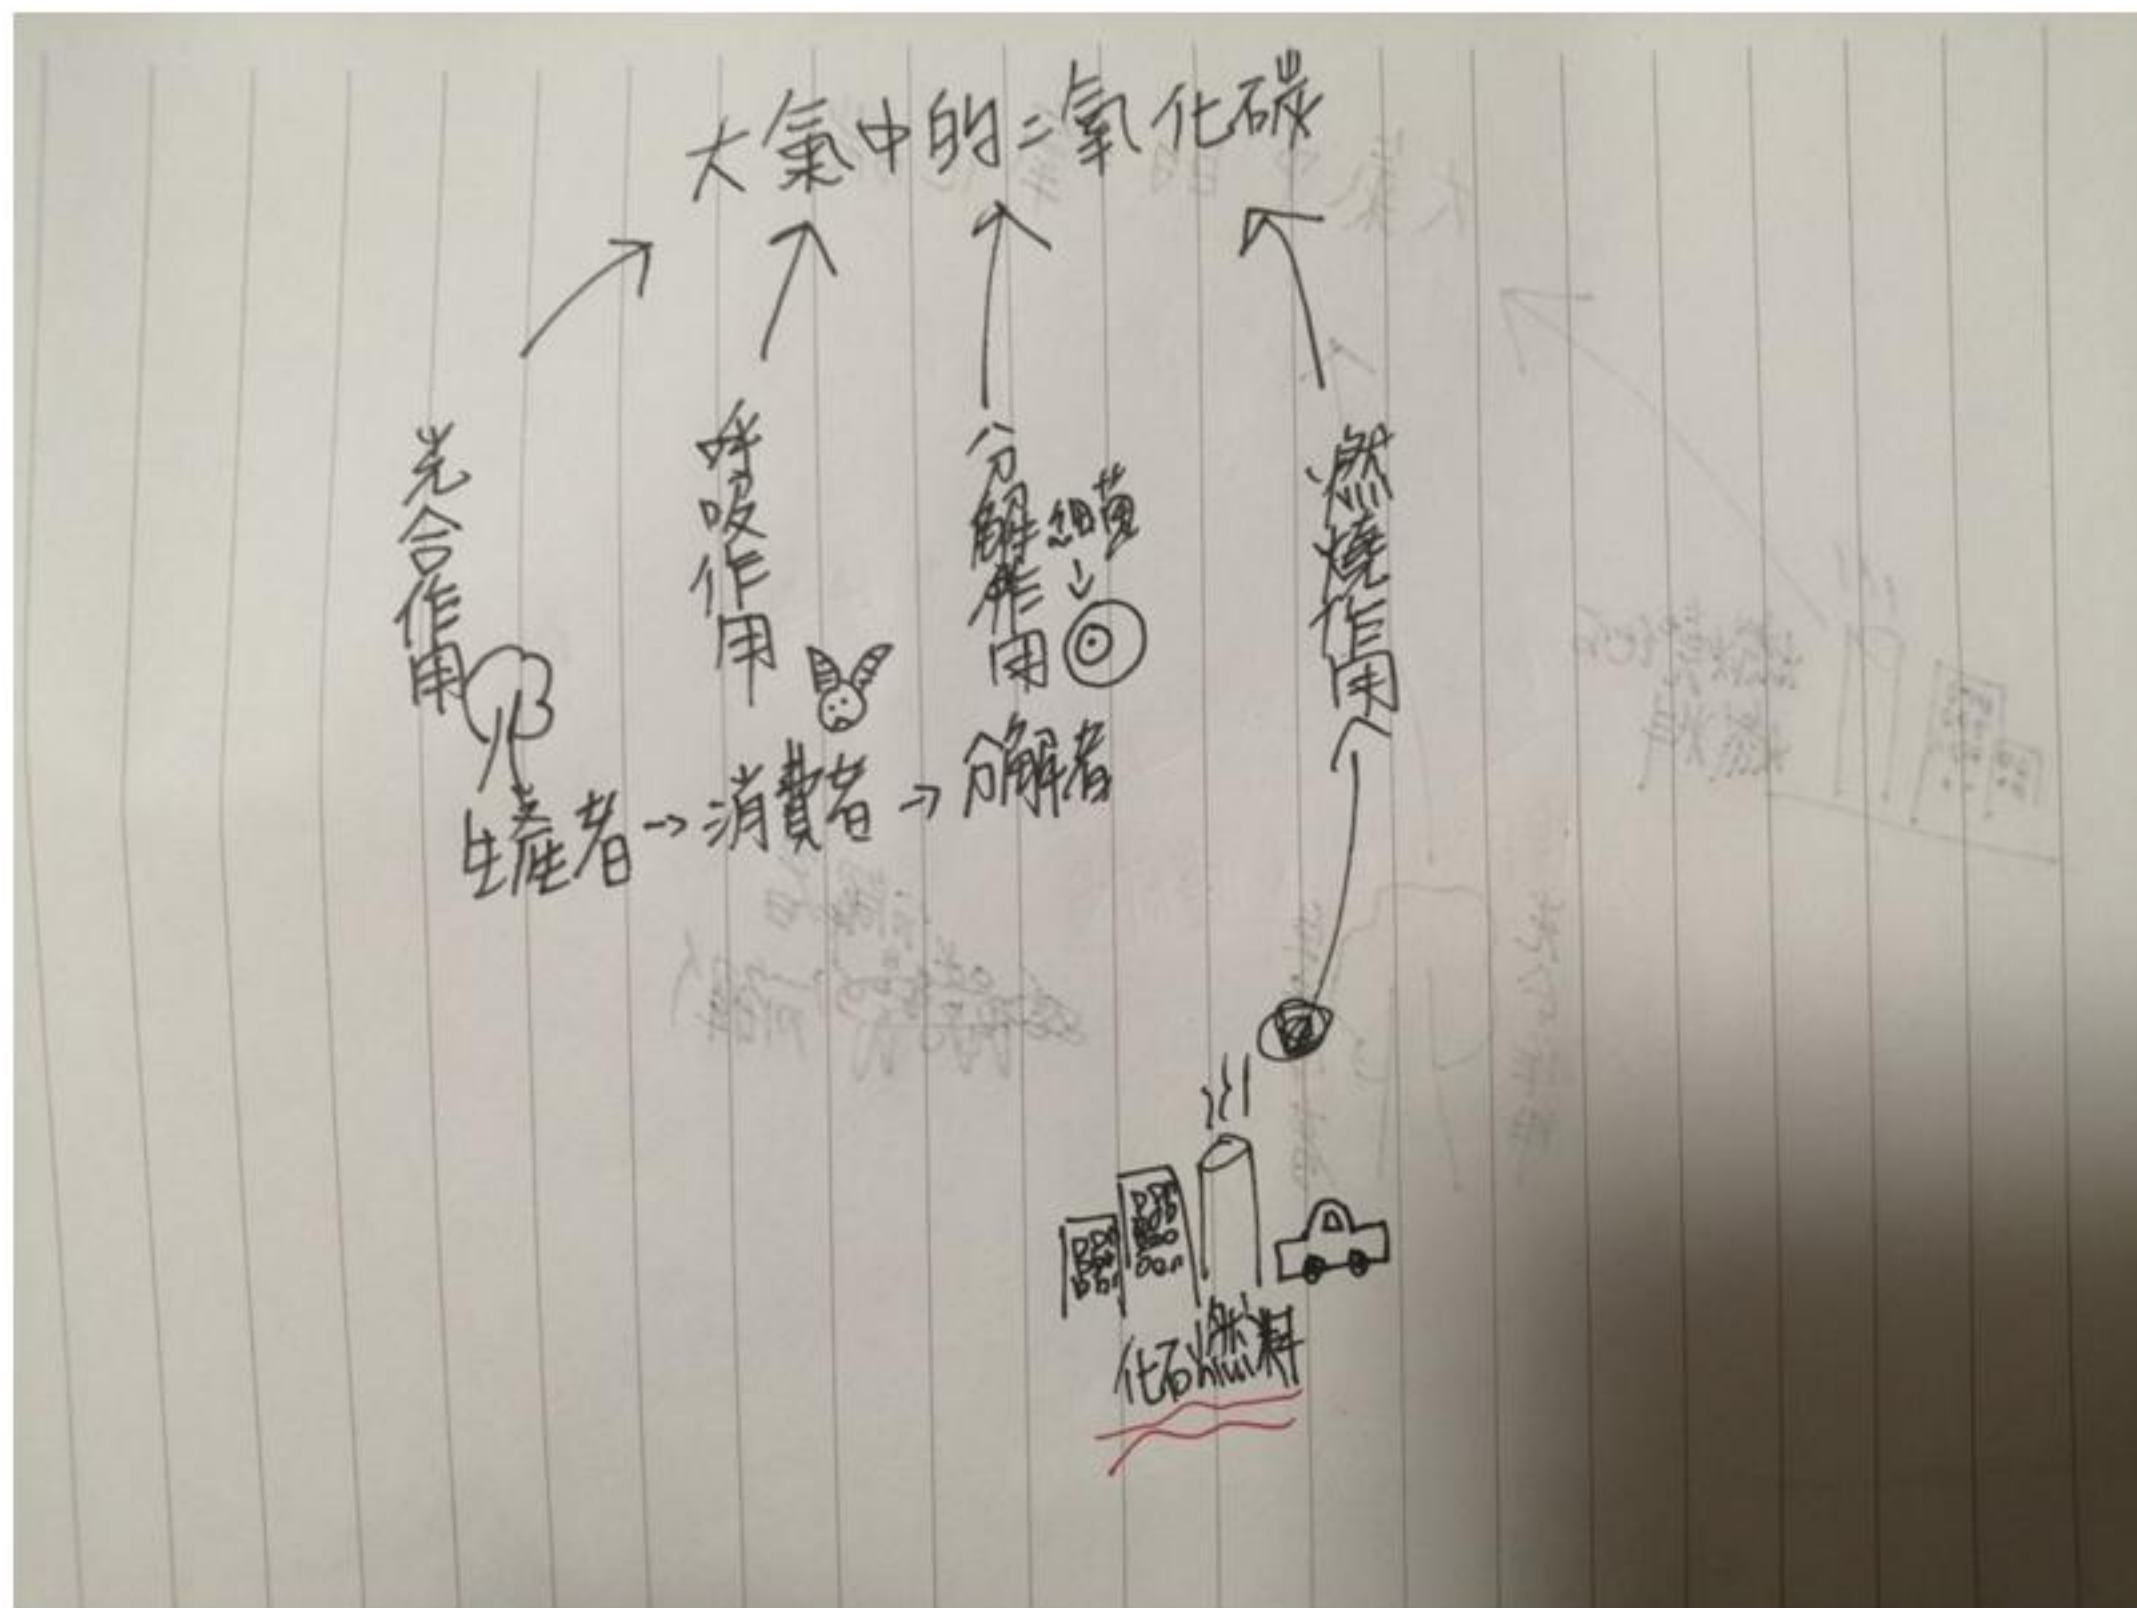 大氣中的二氧化碳
光合作用
呼吸作用
分解作用
細菌
燃燒作用
生產者→消費者→分解者
化石燃料